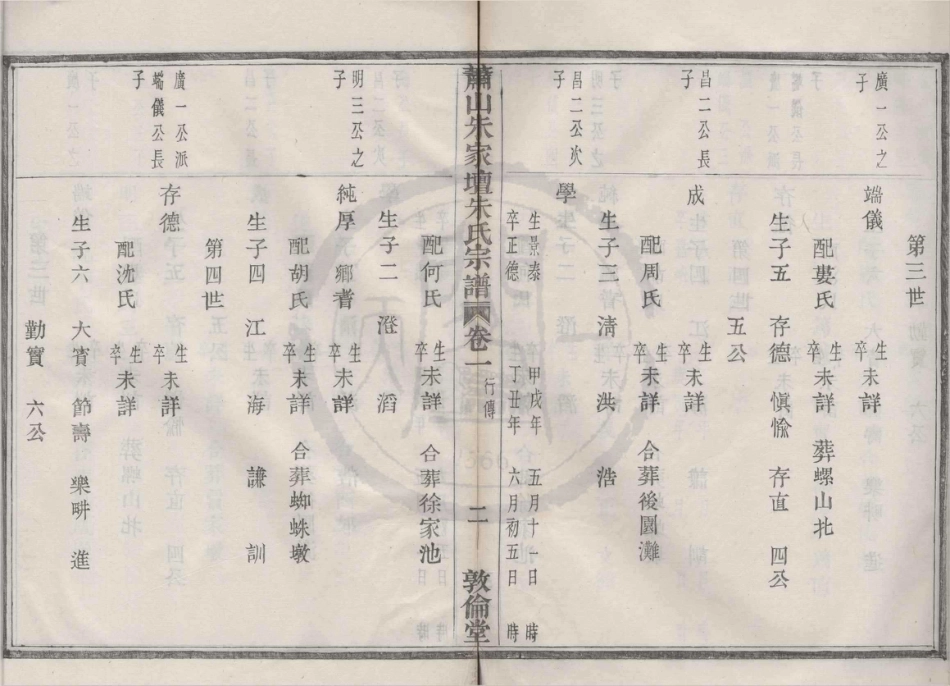 第三世
廣一公之子
端儀 生卒未詳
配婁氏 生卒未詳 葬螺山北
生子五 存德 愼 愉 存直 四公
五公
昌二公長子
成 生卒未詳
配周氏 生卒未詳 合葬後園灘
生子三 淸 洪 浩
昌二公次子
學 生景泰 甲戌年 五月十一日 時
卒正德 丁丑年 六月初五日 時
蕭山朱家壇朱氏宗譜 卷一 行傳 二 敦倫堂
配何氏 生卒未詳 合葬徐家池
生子二 澄 滔
明三公之子
純厚 鄉耆 生卒未詳
配胡氏 生卒未詳 合葬蜘蛛墩
生子四 江 海 謙 訓
第四世
廣一公派端儀公長子
存德 生卒未詳
配沈氏 生卒未詳
生子六 大賓 節壽 樂畊 進
勤實 六公